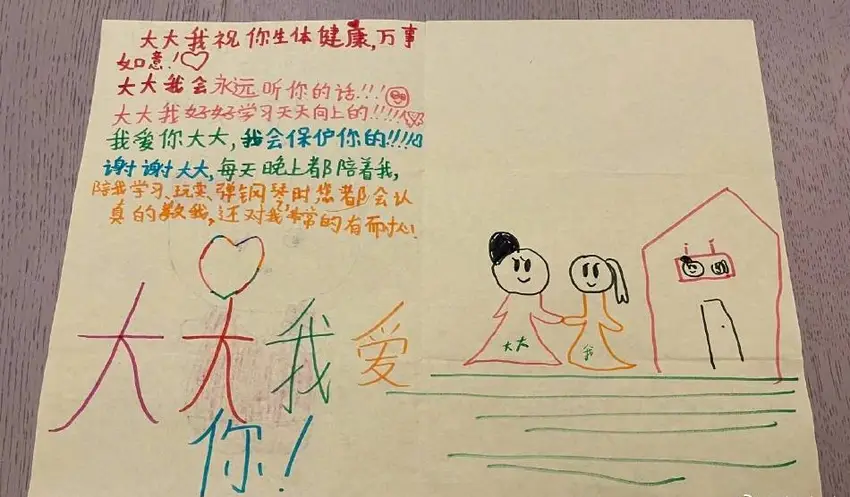 大大我祝你生体健康,万事
如意!
大大我会永远听你的话!!!
大大我好好学习天天向上的!!!!
我爱你大大,我会保护你的!!!!
谢谢大大,每天晚上都陪着我,
陪我学习、玩卖、弹钢琴时,您都会认
真的教我,还对我常的有而心!
大大我爱
你!
大大
我